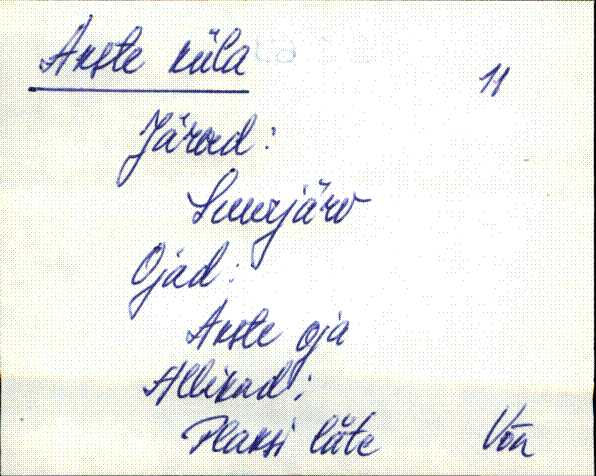 Akste küla
11
Järved:
Suurjärv
Ojad:
Akste oja
Allikad:
Plaksi läte Võn